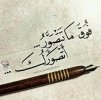 فَوقَ مَا تَتَصَوَّر...
أَتَصَوَّرُكَ...